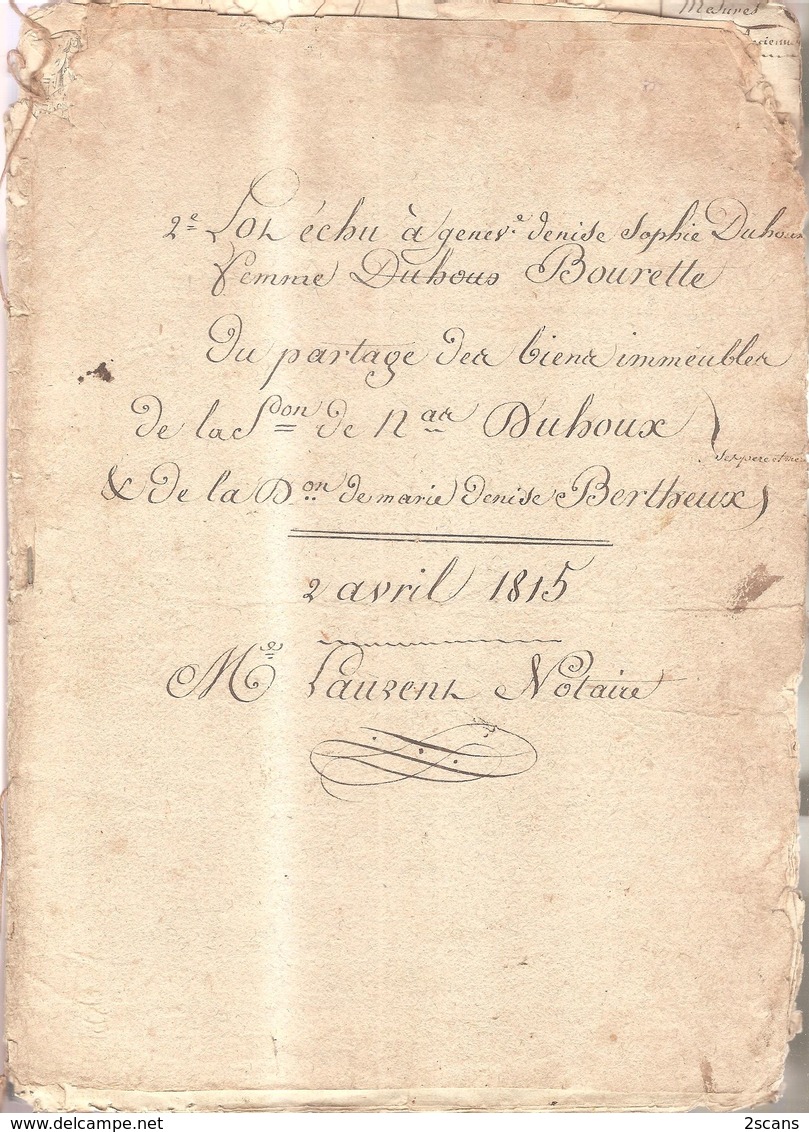 Mesures
2e Lot échu à genev.e denise Sophie Duhoux
femme Duhous Bourette
Du partage des biens immeubles
de la Son de Nas Duhoux
ses pere et mere
& de la Don de marie denise Bertheux
2 avril 1815
Me Laurent Notaire
2scans